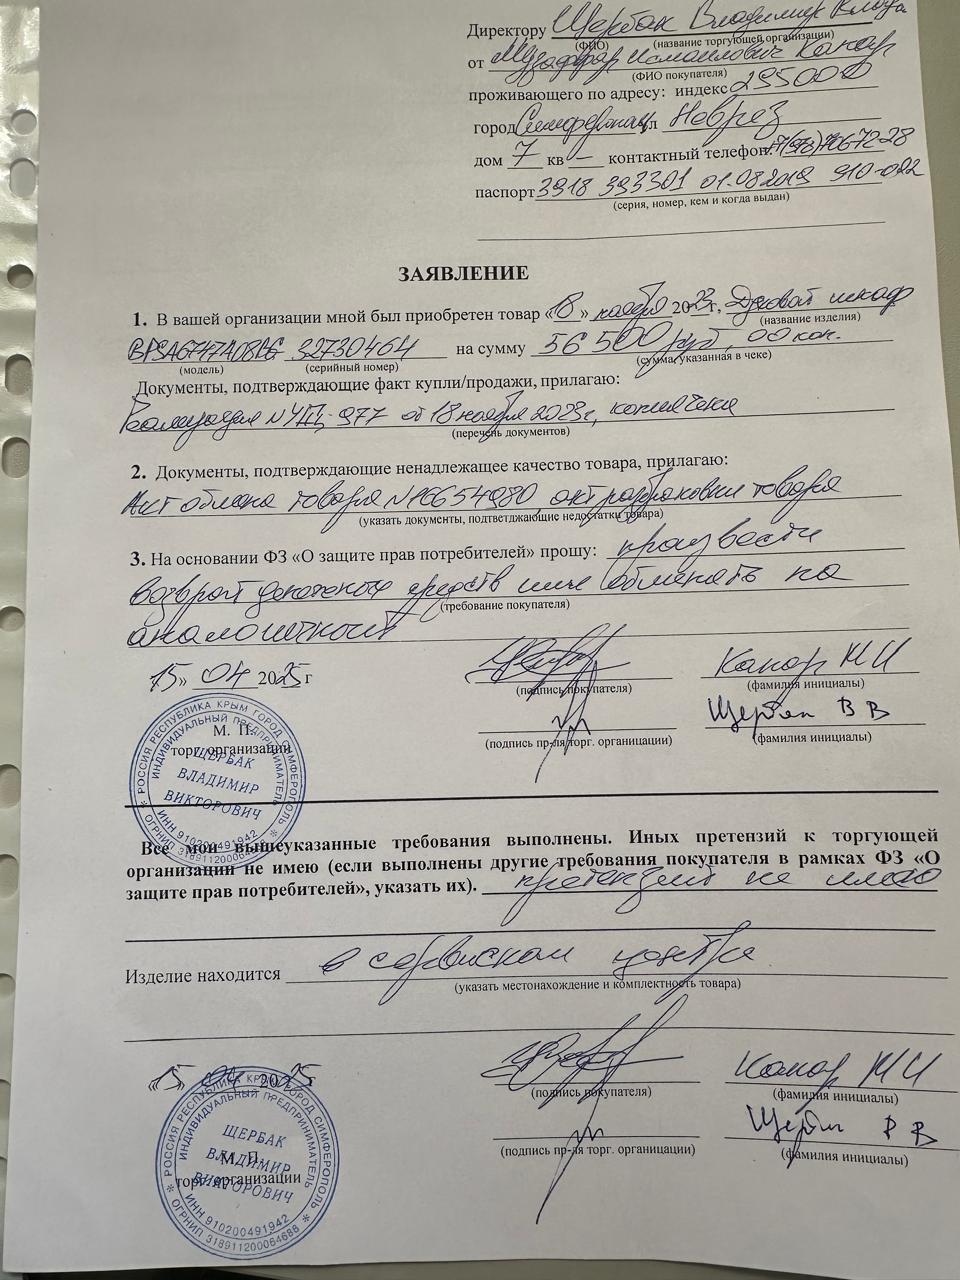 Директору Щербак Владимир Викто
(ФИО) (название торгующей организации)
от Музафар Исмаилович Капар
(ФИО покупателя)
проживающего по адресу: индекс 295000
город Симферополь ул Неврез
дом 7 кв — контактный телефон +7(978)
паспорт 3918 393301 01.08.2019 910-022
(серия, номер, кем и когда выдан)
ЗАЯВЛЕНИЕ
1. В вашей организации мной был приобретен товар «18» ноября 2023 г, Духовой шкаф
(название изделия)
32730464 на сумму 56 500 руб, 00 коп.
(модель) (серийный номер) (сумма, указанная в чеке)
Документы, подтверждающие факт купли/продажи, прилагаю:
977 от 18 ноября 2023 г, копия чека
(перечень документов)
2. Документы, подтверждающие ненадлежащее качество товара, прилагаю:
Акт обмена товара №А6654980, акт разбраковки товара
(указать документы, подтветджающие недостатки товара)
3. На основании ФЗ «О защите прав потребителей» прошу: произвести
возврат денежных средств или обменять на
(требование покупателя)
аналогичный
15» 04 2025 г
Капар М И
(подпись покупателя) (фамилия инициалы)
Щербак В В
(подпись пр-ля торг. органицации) (фамилия инициалы)
М. П.
торг. организации
РОССИЯ РЕСПУБЛИКА КРЫМ ГОРОД СИМФЕРОПОЛЬ
ИНДИВИДУАЛЬНЫЙ ПРЕДПРИНИМАТЕЛЬ
ЩЕРБАК
ВЛАДИМИР
ВИКТОРОВИЧ
ИНН 910200491942
ОГРНИП 318911200064688
Все мои вышеуказанные требования выполнены. Иных претензий к торгующей
организации не имею (если выполнены другие требования покупателя в рамках ФЗ «О
защите прав потребителей», указать их). претензий не имею
Изделие находится в сервисном центре
(указать местонахождение и комплектность товара)
«15» 04 2025 г
Капар М И
(подпись покупателя) (фамилия инициалы)
Щербак В В
(подпись пр-ля торг. органицации) (фамилия инициалы)
М. П.
торг. организации
РОССИЯ РЕСПУБЛИКА КРЫМ ГОРОД СИМФЕРОПОЛЬ
ИНДИВИДУАЛЬНЫЙ ПРЕДПРИНИМАТЕЛЬ
ЩЕРБАК
ВЛАДИМИР
ВИКТОРОВИЧ
ИНН 910200491942
ОГРНИП 318911200064688